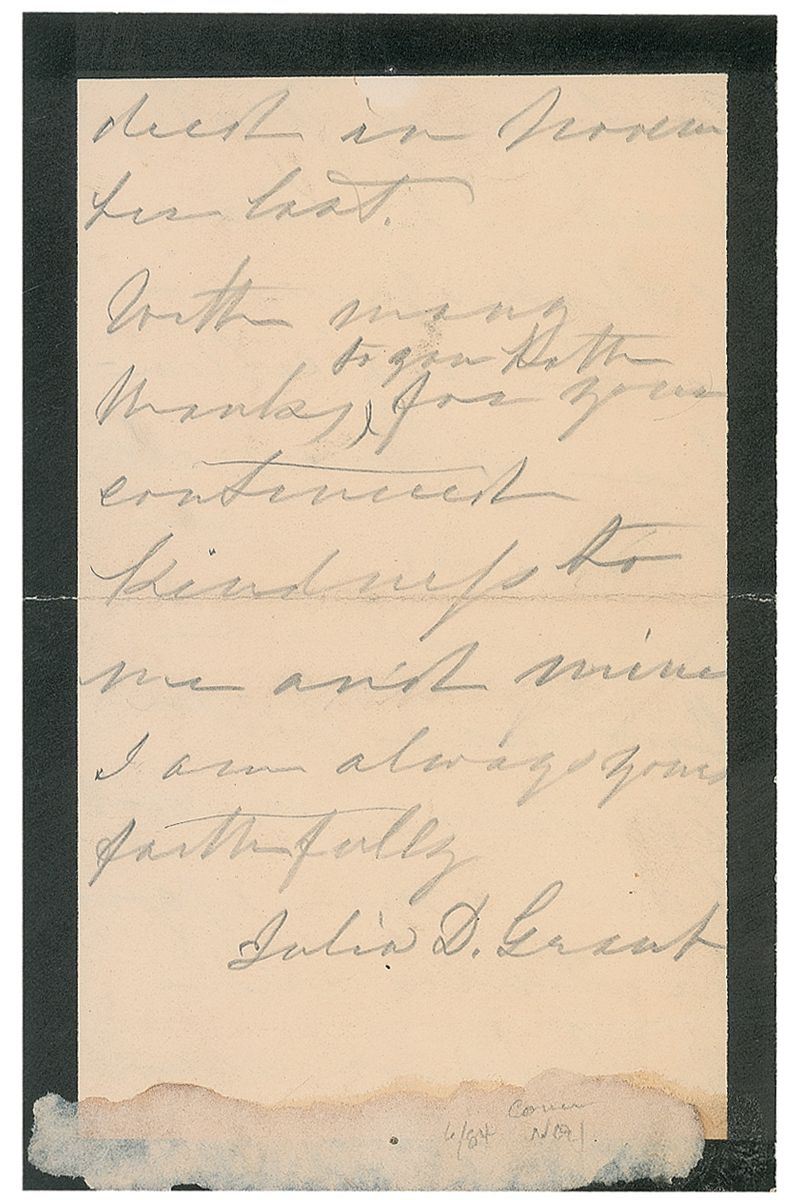 died in Novem
ber last.
With many
to you both
thanks, for your
continued
kindness to
me and mine
I am always yours
faithfully
Julia D. Grant
Cover
6/84